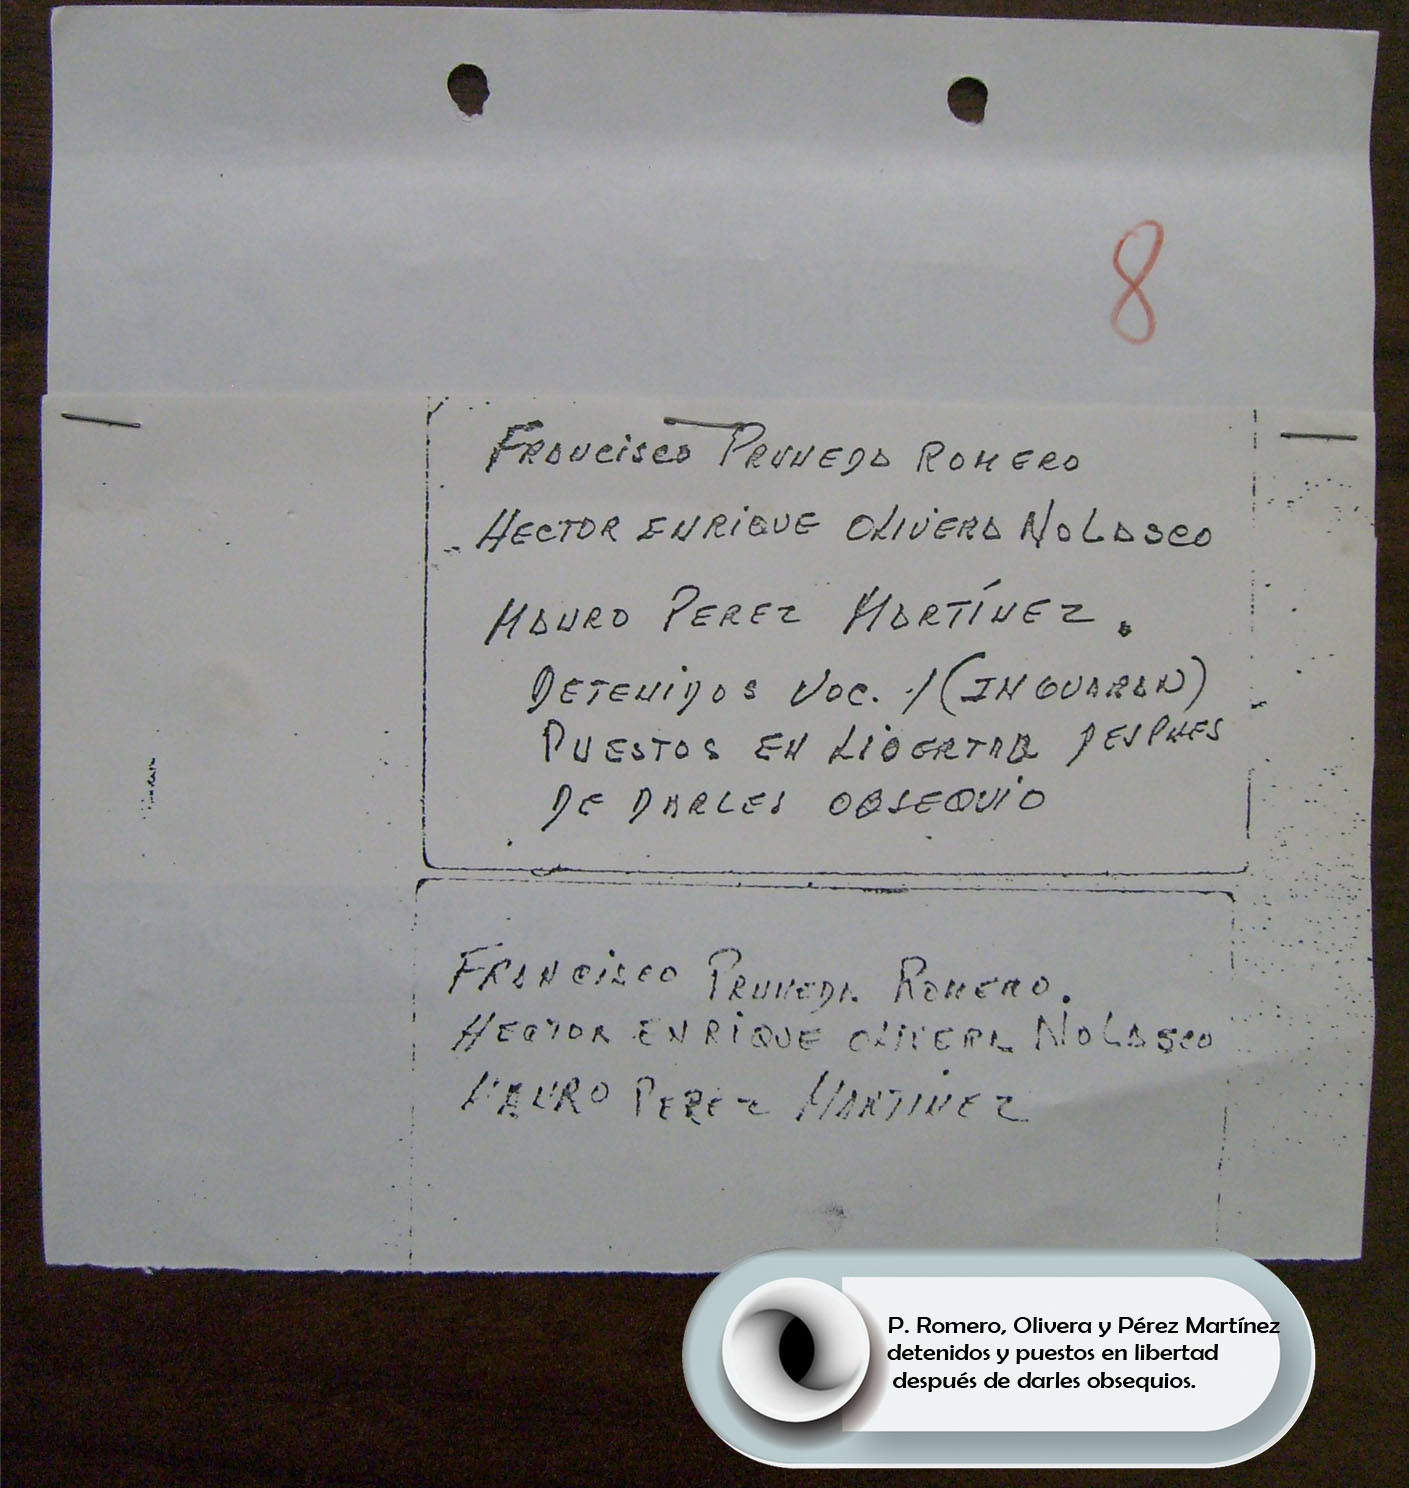 8
FRANCISCO PRUNEDA ROMERO
HECTOR ENRIQUE OLIVERA NOLASCO
MAURO PEREZ MARTÍNEZ.
DETENIDOS VOC. 1 (INGUARAN)
PUESTOS EN LIBERTAD DESPUES
DE DARLES OBSEQUIO
FRANCISCO PRUNEDA ROMERO.
HECTOR ENRIQUE OLIVERA NOLASCO
MAURO PEREZ MARTINEZ
P. Romero, Olivera y Pérez Martínez
detenidos y puestos en libertad
después de darles obsequios.